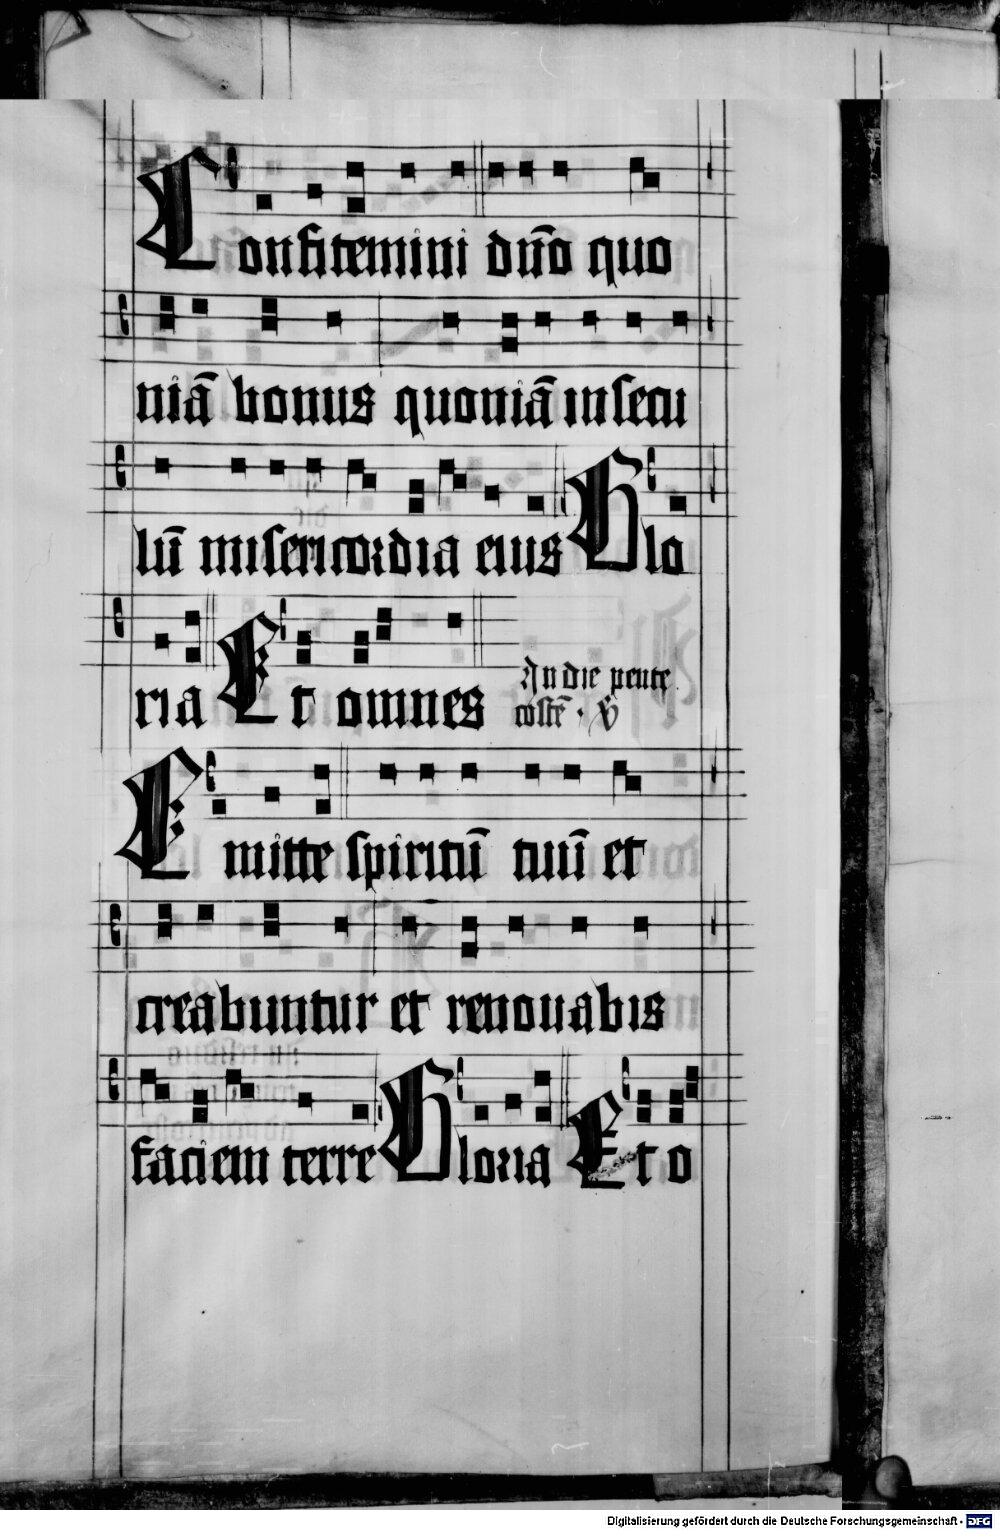 Confitemini dño quo
niā bonus quoniā in secu
lū misericordia eius Glo
ria Et omnes In die pente
costē · v̄
Emitte spiritū tuū et
creabuntur et renouabis
faciem terre Gloria Et o
Digitalisierung gefördert durch die Deutsche Forschungsgemeinschaft - DFG